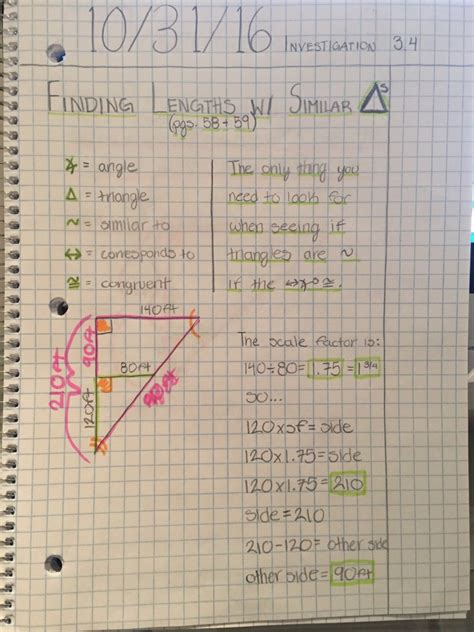 10/31/16 INVESTIGATION 3.4
FINDING LENGTHS W/ SIMILAR Δs
(pgs. 58 + 59)
∡ = angle
Δ = triangle
~ = similar to
↔ = corresponds to
≅ = congruent
The only thing you
need to look for
when seeing if
triangles are ~
if the ↔∡s ≅.
140ft
90ft
80ft
210ft
120ft
The scale factor is:
140÷80=1.75=1 3/4
so...
120xsf=side
120x1.75=side
120x1.75=210
side=210
210-120=other side
other side=90ft